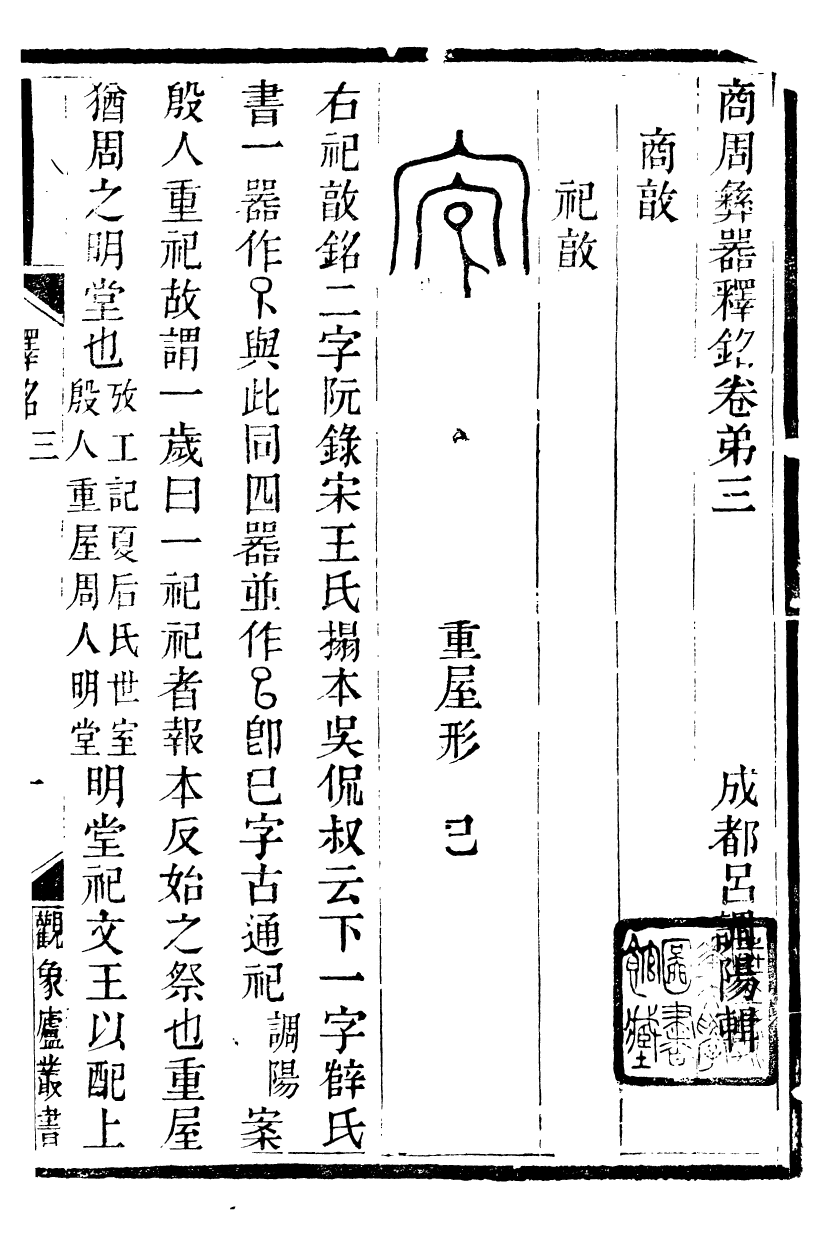 商周彝器釋銘卷弟三　成都呂調陽輯
商敵
祀敵
重屋形　己
右祀敵銘二字阮錄宋王氏搨本吳侃叔云下一字薛氏
書一器作𠃑與此同四器並作㔾卽巳字古通祀調陽案
殷人重祀故謂一歲曰一祀祀者報本反始之祭也重屋
猶周之明堂也攷工記夏后氏世室殷人重屋周人明堂明堂祀文王以配上
釋銘三
一
觀象廬叢書